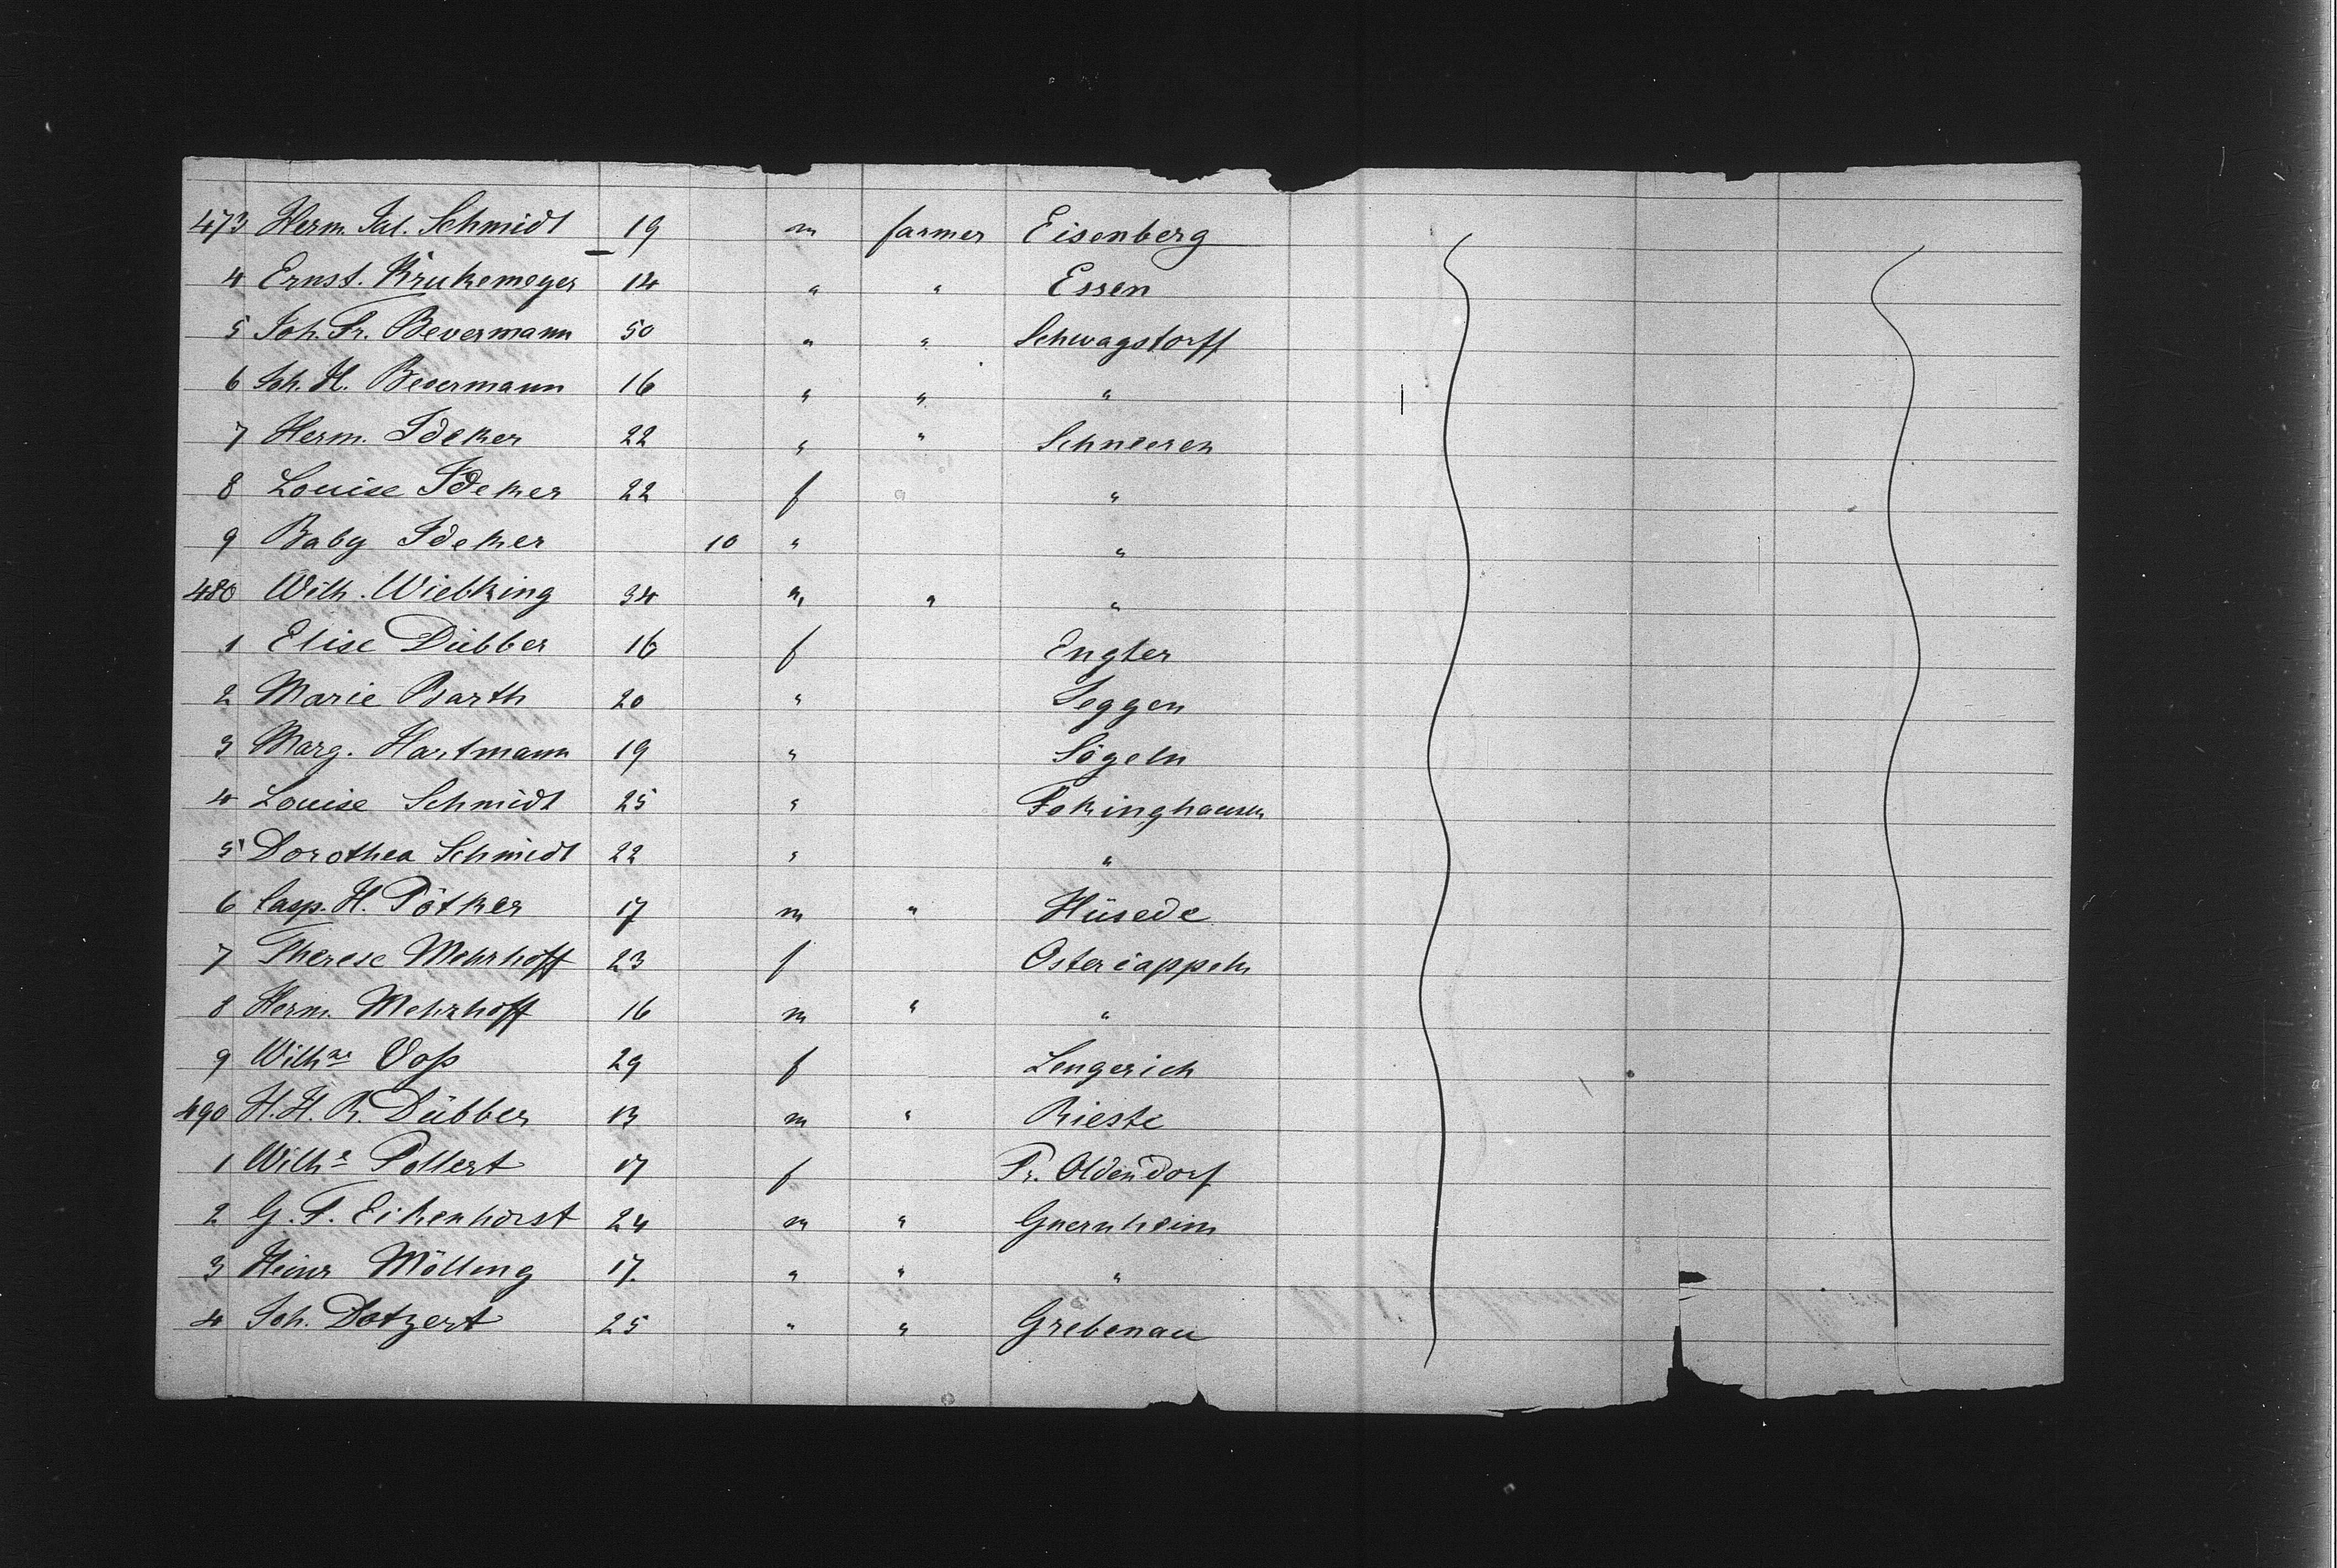 473 Herm. Jul. Schmidt 19 m farmer Eisenberg
4 Ernst. Krukemeyer 14 " " Essen
5 Joh. Fr. Bevermann 50 " " Schwagstorff
6 Joh. H. Bevermann 16 " " "
7 Herm. Ideker 22 " " Schneeren
8 Louise Ideker 22 f "
9 Baby Ideker 10 " "
480 Wilh. Wiebking 34 m " "
1 Elise Dübber 16 f Engter
2 Marie Barth 20 " Seggen
3 Marg. Hartmann 19 " Sögeln
4 Louise Schmidt 25 " Fokinghausen
5 Dorothea Schmidt 22 " "
6 Casp. H. Pötker 17 m " Hüsede
7 Therese Mehrhoff 23 f Ostercappeln
8 Herm. Mehrhoff 16 m " "
9 Wilhne Voß 29 f Lengerich
490 H. H. R. Dübber 13 m " Rieste
1 Wilhe Pollert 17 f Pr. Oldendorf
2 G. F. Eikenhorst 24 m " Gnernheim
3 Heinr Mölling 17. " " "
4 Joh. Dotzert 25 " " Grebenau